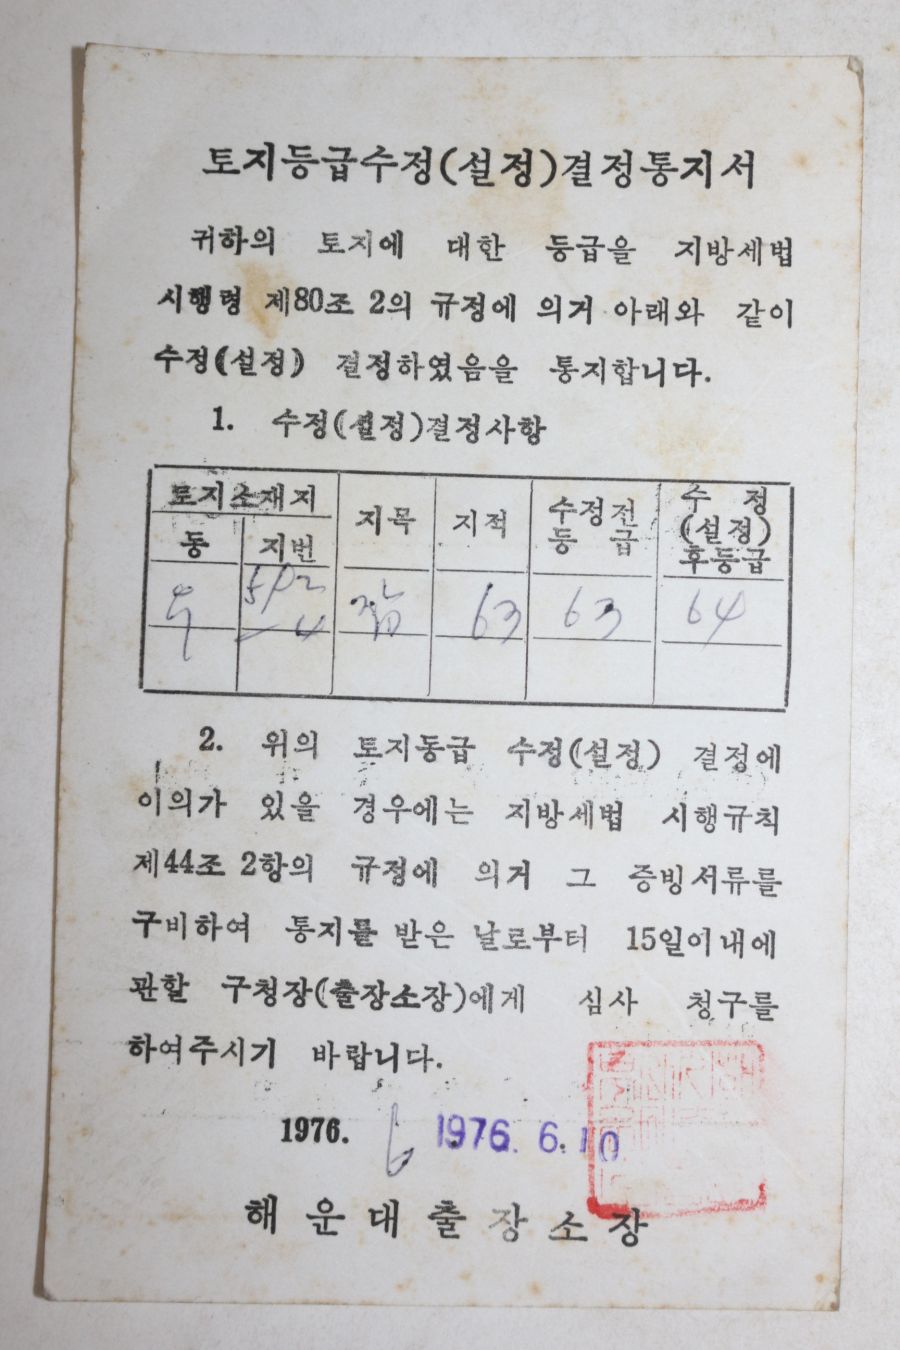 토지등급수정(설정)결정통지서
귀하의 토지에 대한 등급을 지방세법
시행령 제80조 2의 규정에 의거 아래와 같이
수정(설정) 결정하였음을 통지합니다.
1. 수정(설정)결정사항
토지소재지 지목 지적 수정전등급 수정(설정)후등급
동 지번
우 592-4 잡 63 63 64
2. 위의 토지등급 수정(설정) 결정에
이의가 있을 경우에는 지방세법 시행규칙
제44조 2항의 규정에 의거 그 증빙서류를
구비하여 통지를 받은 날로부터 15일이내에
관할 구청장(출장소장)에게 심사 청구를
하여주시기 바랍니다.
1976. 6 1976. 6. 10
해운대출장소장